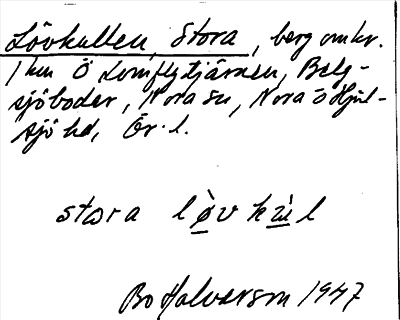 Lövkullen, Stora, berg omkr.
1 km Ö Lomflytjärnen, Belg-
sjöboder, Nora sn, Nora ö Hjul-
sjö hd, Ör. l.
stora løv kul
Bo Halvarson 1947